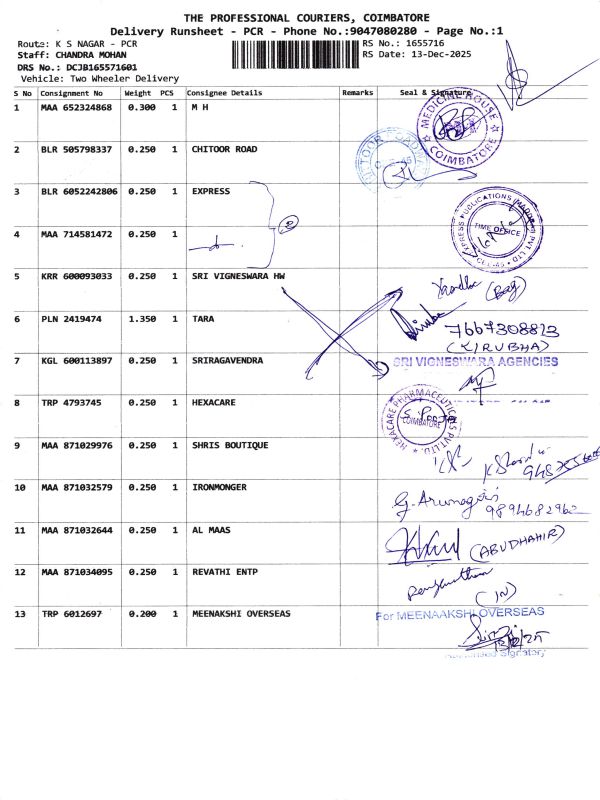 THE PROFESSIONAL COURIERS, COIMBATORE
Delivery Runsheet - PCR - Phone No.:9047080280 - Page No.:1
Route: K S NAGAR - PCR RS No.: 1655716
Staff: CHANDRA MOHAN RS Date: 13-Dec-2025
DRS No.: DCJB165571601
Vehicle: Two Wheeler Delivery
S No Consignment No Weight PCS Consignee Details Remarks Seal & Signature
1 MAA 652324868 0.300 1 M H
MEDICINE HOUSE COIMBATORE
2 BLR 505798337 0.250 1 CHITOOR ROAD
3 BLR 6052242806 0.250 1 EXPRESS
4 MAA 714581472 0.250 1
EXPRESS PUBLICATIONS (MADURAI) PVT. LTD. TIME OFFICE
5 KRR 600093033 0.250 1 SRI VIGNESWARA HW
(Bag)
6 PLN 2419474 1.350 1 TARA 7667308813
(KIRUBHA)
7 KGL 600113897 0.250 1 SRIRAGAVENDRA SRI VIGNESWARA AGENCIES
8 TRP 4793745 0.250 1 HEXACARE
HEXACARE PHARMACEUTICALS PVT.LTD. COIMBATORE
9 MAA 871029976 0.250 1 SHRIS BOUTIQUE
10 MAA 871032579 0.250 1 IRONMONGER G. Arunagiri
9894682960
11 MAA 871032644 0.250 1 AL MAAS (ABUDHAHIR)
12 MAA 871034095 0.250 1 REVATHI ENTP
(IN)
13 TRP 6012697 0.200 1 MEENAKSHI OVERSEAS For MEENAAKSHI OVERSEAS
13/12/25
Signatory